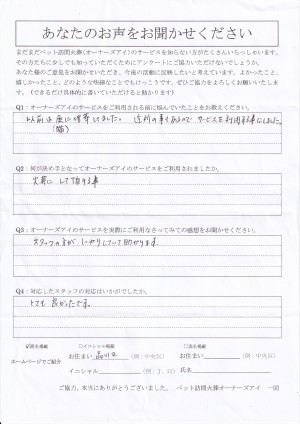 あなたのお声をお聞かせください
まだまだペット訪問火葬（オーナーズアイ）のサービスを知らない方がたくさんいらっしゃいます。
その方たちに少しでも知っていただくためにアンケートにご協力いただけないでしょうか。
あなた様のご意見をお聞かせいただき、今後の活動に反映したいと考えています。よかったこと、
嬉しかったこと、どのような些細なことでもけっこうです。ぜひご協力をよろしくお願いいたします。
（できるだけ具体的に書いていただけると助かります）
Q1：オーナーズアイのサービスをご利用される前に悩んでいたことをお教えください。
以前は庭に埋葬しました。近所の事もあるので サービスを利用する事にしました。
（猫）
Q2：何が決め手となってオーナーズアイのサービスをご利用されましたか。
火葬にして頂ける事
Q3：オーナーズアイのサービスを実際にご利用なさってみての感想をお聞かせください。
スタッフの方がしっかりしていて助かります。
Q4：対応したスタッフの対応はいかがでしたか。
とても良かったです。
匿名掲載 □イニシャル掲載 □実名掲載
ホームページでご紹介 お住まい 品川区 （例：中央区） お住まい （例：中央区）
イニシャル （例：J．H） 氏名
ご協力、本当にありがとうございました。 ペット訪問火葬オーナーズアイ 一同